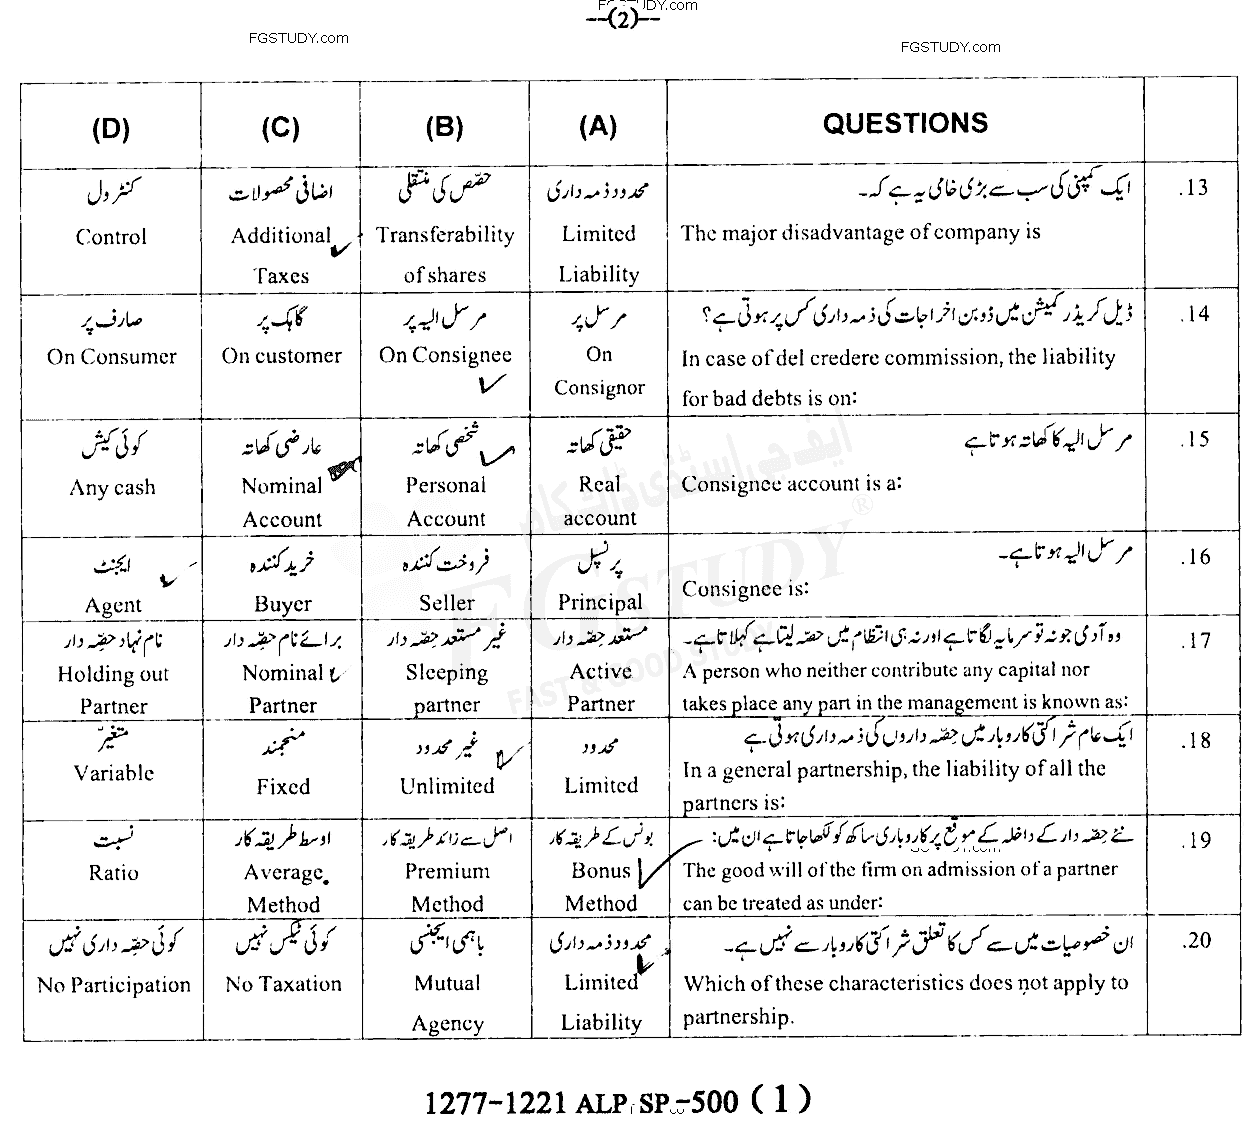 FGSTUDY.com
—(2)—
FGSTUDY.com
FGSTUDY.com
(D) (C) (B) (A) QUESTIONS
کنٹرول اضافی محصولات حصّص کی منتقلی محدود ذمہ داری ایک کمپنی کی سب سے بڑی خامی یہ ہے کہ۔ .13
Control Additional Transferability Limited The major disadvantage of company is
Taxes of shares Liability
صارف پر گاہک پر مرسل الیہ پر مرسل پر ڈیل کریڈر کمیشن میں ڈوبن اخراجات کی ذمہ داری کس پر ہوتی ہے؟ .14
On Consumer On customer On Consignee On In case of del credere commission, the liability
Consignor for bad debts is on:
کوئی کیش عارضی کھاتہ شخصی کھاتہ حقیقی کھاتہ مرسل الیہ کا کھاتہ ہوتا ہے .15
Any cash Nominal Personal Real Consignee account is a:
Account Account account
ایجنٹ خرید کنندہ فروخت کنندہ پرنسپل مرسل الیہ ہوتا ہے۔ .16
Agent Buyer Seller Principal Consignee is:
نام نہاد حصّہ دار برائے نام حصّہ دار غیر مستعد حصّہ دار مستعد حصّہ دار وہ آدمی جو نہ تو سرمایہ لگاتا ہے اور نہ ہی انتظام میں حصّہ لیتا ہے کہلاتا ہے۔ .17
Holding out Nominal Sleeping Active A person who neither contribute any capital nor
Partner Partner partner Partner takes place any part in the management is known as:
متغیّر منجمند غیر محدود محدود ایک عام شراکتی کاروبار میں حصّہ داروں کی ذمہ داری ہوتی ہے .18
Variable Fixed Unlimited Limited In a general partnership, the liability of all the
partners is:
نسبت اوسط طریقہ کار اصل سے زائد طریقہ کار بونس کے طریقہ کار نئے حصّہ دار کے داخلہ کے موقع پر کاروباری ساکھ کو لکھا جاتا ہے ان میں: .19
Ratio Average Premium Bonus The good will of the firm on admission of a partner
Method Method Method can be treated as under:
کوئی حصّہ داری نہیں کوئی ٹیکس نہیں باہمی ایجنسی محدود ذمہ داری ان خصوصیات میں سے کس کا تعلق شراکتی کاروبار سے نہیں ہے۔ .20
No Participation No Taxation Mutual Limited Which of these characteristics does not apply to
Agency Liability partnership.
ایف جی اسٹڈی ڈاٹ کام
FGSTUDY®
FAST & GOOD STUDY
1277-1221 ALP SP -500 (1)